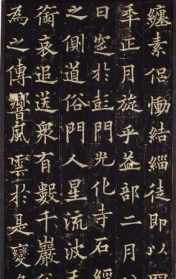 纏素侶慟結緇徒即以四
年正月旋乎益部二月八
日窆於彭門光化寺石經
之側道俗門人星流波
銜哀追送眾有數千巖
為之傳響風雲於是變